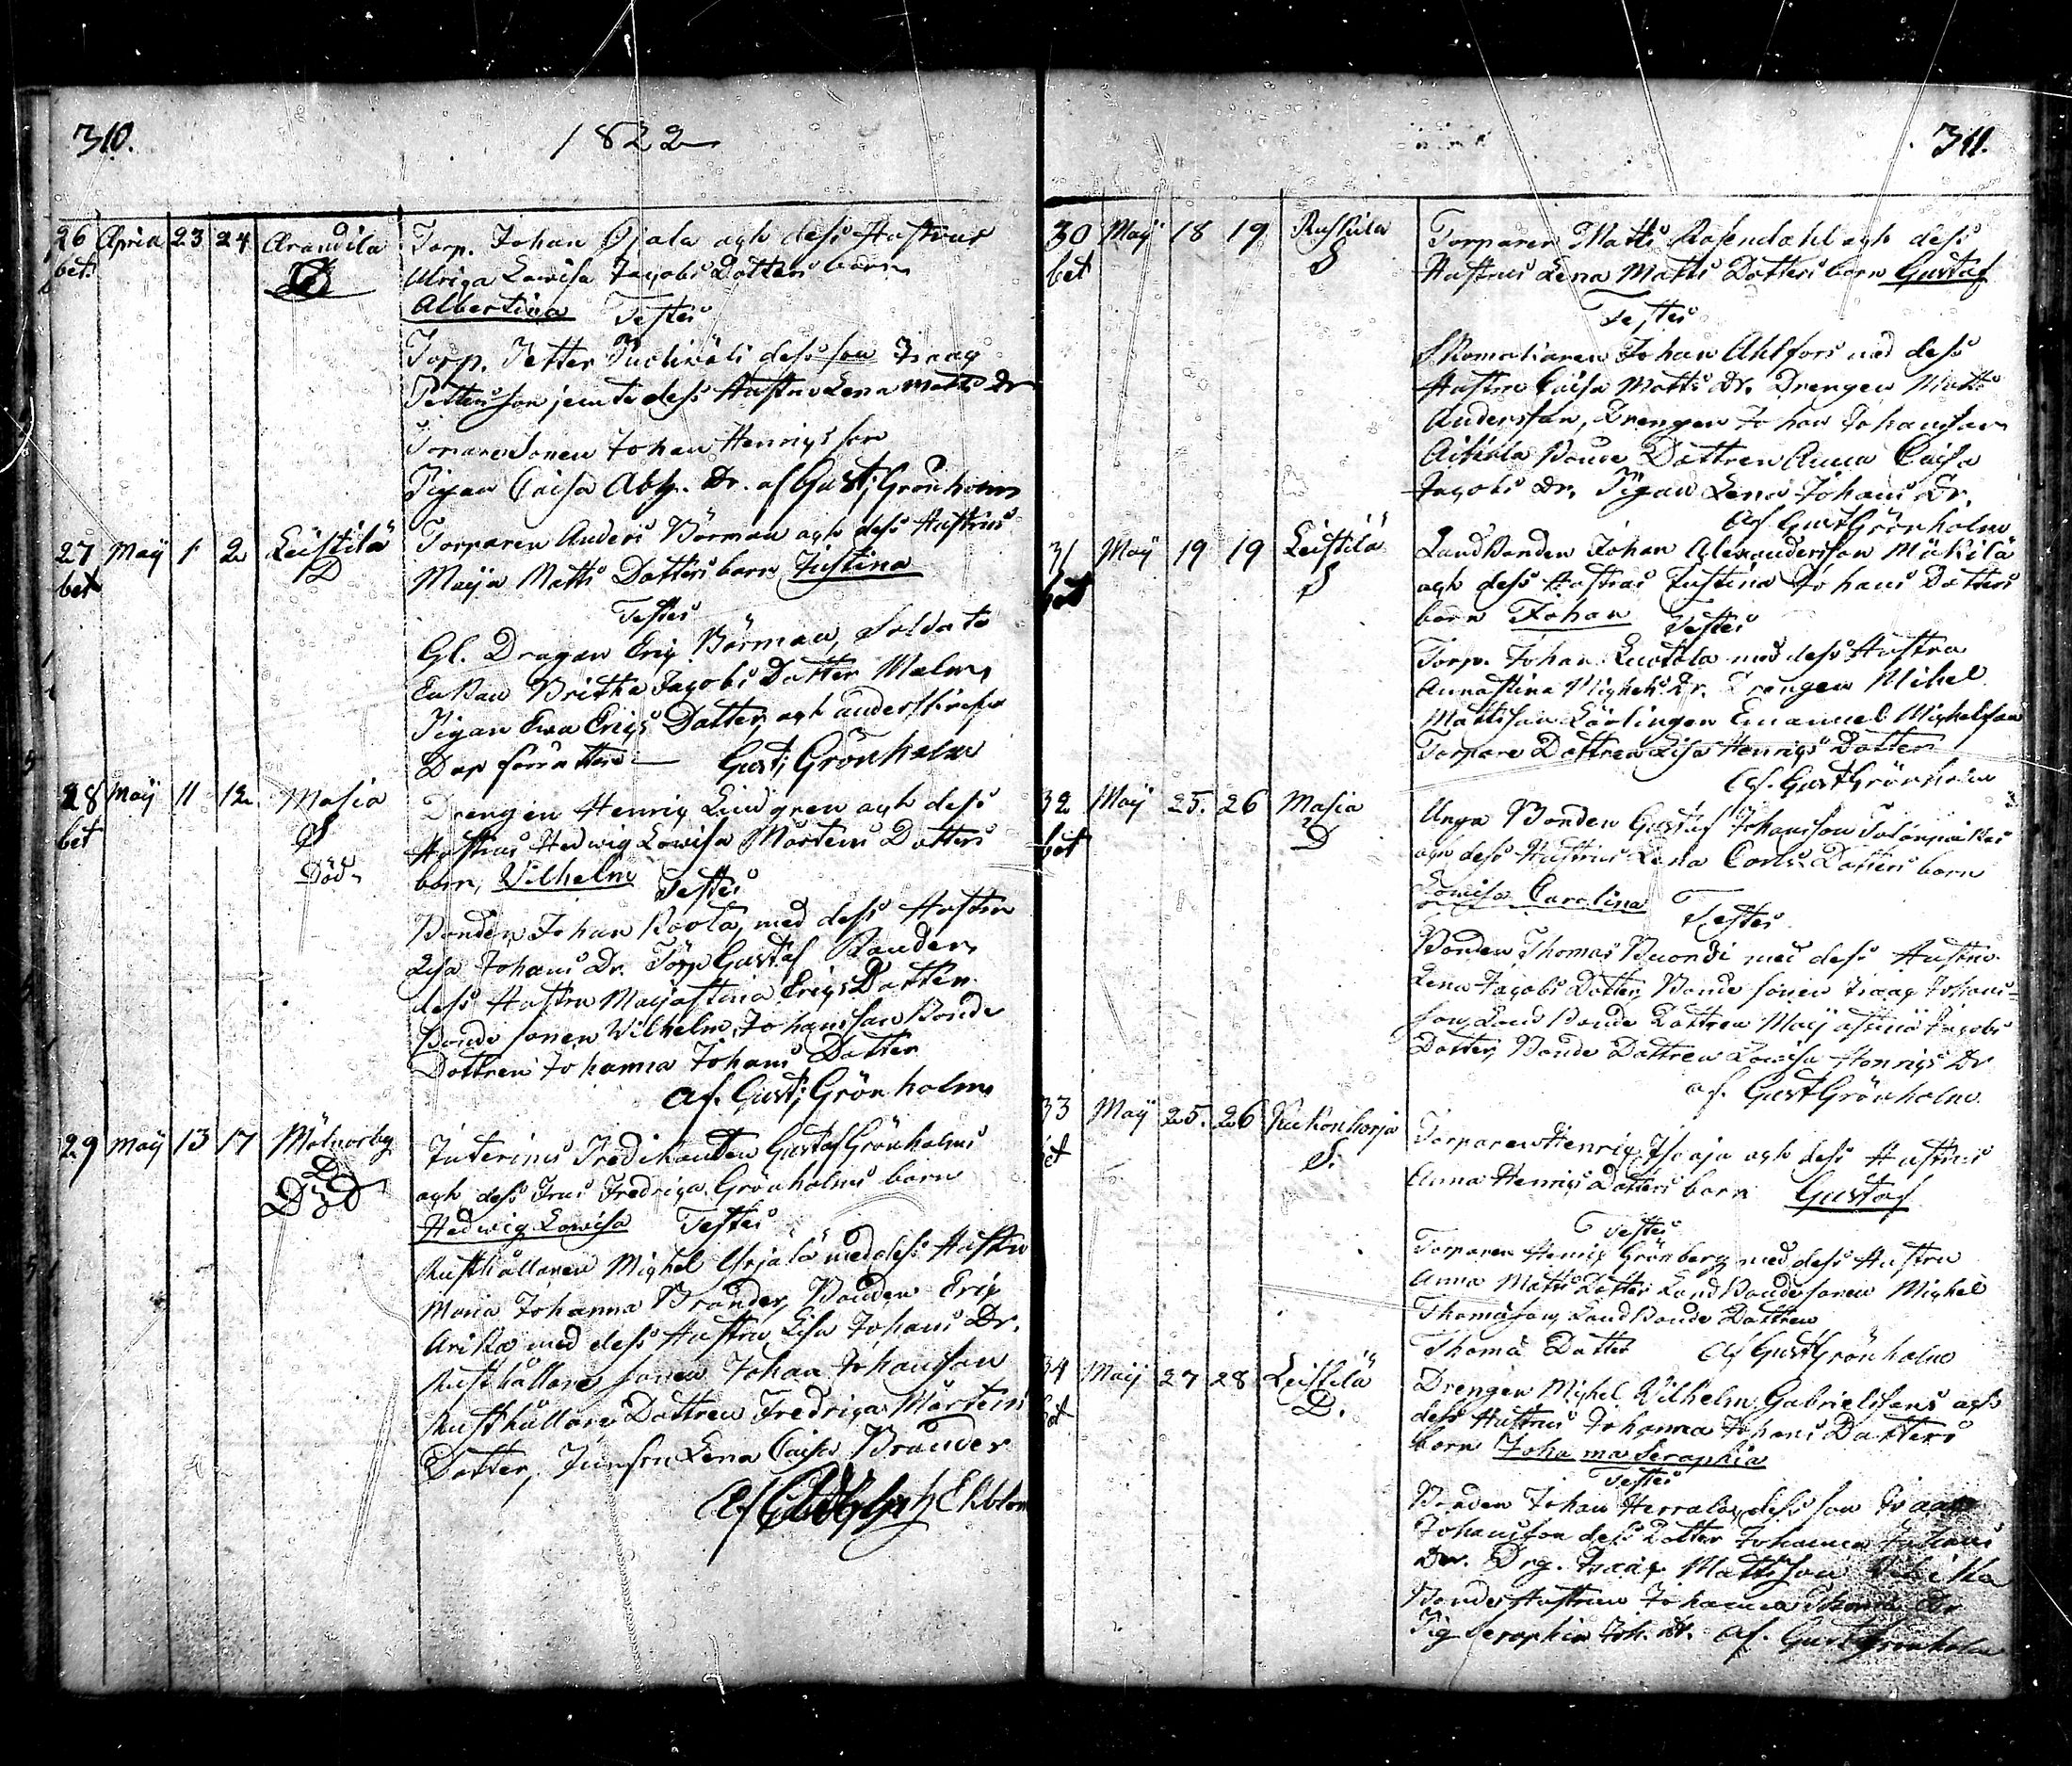 310.
1822
26 Apria 23 24 Arandila Torp. Johan Ojala ogh dess Hustrus
bet. D Ulriga Lowisa Jagobs Dotters barn
Albertina Testes
Torp. Petter dess son Isaag
Pettersson jemte dess Hustru Lena Matts Dr
Torpare Sonen Johan Henrigsson
Pigan Caisa Abh. Dr. af Gust; Grönholm
27 Maij 1 2 Leistilä Torparen Anders Börman ogh dess Hustrus
bet D Maija Matts Dotters barn Justina
Testes
Gl. Dragon Erig Börman, Soldate
Enkan Britha Jagobs Dotter Malm,
Pigan Ewa Erigs Dotter, ogh
Dop förrattare — Gust; Grönholm
28 Maij 11 12 Masia Drengen Henrig Lindgren ogh dess
bet S Hustrus Hedwig Lowisa Mårtens Dotters
Död barn, Vilhelm Testes
Bonden Johan Roola, med dess Hustru
Lisa Johans Dr. Torp Gustaf Rander
dess Hustru Maijastina Erigs Dotter
Bonde sonen Vilhelm Johansson Bonde
Dottren Johanna Johans Dotter
af. Gust; Grönholm
29 Maij 13 17 Mälnorby Interims Predikanten Gustaf Grönholms
D ogh dess Frus Fredriga Grönholms barn
Död Hedwig Lowisa Testes
Rusthållaren Mighel Yrjälä med dess Hustru
Maria Johanna Brander, Bonden Erig
Arikka med dess Hustru Lisa Johans Dr.
Rusthållare sonen Johan Johansson
Rusthållare Dottren Fredriga Mårtens
Dotter, Jumfru Lena Caisa Brander
Af Ekblom
311.
30 Maij 18 19 Russila Torparen Matts Rosendahl ogh dess
bet S Hustrus Lena Matts Dotters barn Gustaf
Testes
Skomakaren Johan Ahlfors med dess
Hustru Caisa Matts Dr. Drengen Matts
Andersson, Drengen Johan Johansson
Bonde Dottren Anna Caisa
Jagobs Dr. Pigan Lena Johans Dr.
Af Gust Grönholm
31 Maij 19 19 Leistilä Landbonden Johan Alexandersson Mäkilä
bet S ogh dess Hustrus Justina Johans Dotters
barn Johan Testes
Torp. Johan med dess Hustru
Annastina Mighels Dr. Drengen Mihel
Mattsson Lärlingen Emanuel Mighelson
Torpare Dottren Lisa Henrigs Dotter
Af. Gust Grönholm
32 Maij 25. 26 Masia Unga Bonden Gustaf Johansson
bet D ogh dess Hustrus Lena Carls Dotters barn
Lowisa Carolina Testes
Bonden Thomas Vuordi med dess Hustru
Lena Jagobs Dotter, Bonde sonen Isaag Johans=
son, Land Bonde Dottren Maijastina Jagobs
Dotter, Bonde Dottren Lowisa Henrigs Dr
af. Gust Grönholm
33 Maij 25. 26 Kukonharja Torparen Henrig Isoaja ogh dess Hustrus
bet S. Anna Henrigs Dotters barn Gustaf
Testes
Torparen Henrig Grönberg med dess Hustru
Anna Matts Dotter Land Bondesonen Mighel
Thomasson, Land Bonde Dottren
Thomä Dotter Af Gust Grönholm
34 Maij 27 28 Leistilä Drengen Mighel Vilhelm Gabrielssons ogh
bet D. dess Hustrus Johanna Johans Dotters
barn Johanna Seraphia
Testes
Bonden Johan Herrala, dess son Isaag
Johansson dess Dotter Johanna Johans
Dr. Drg. Isaag Mattsson
Bonde Hustrun Johanna Dr
Pig Seraphia Joh. Dr. af. Gust Grönholm